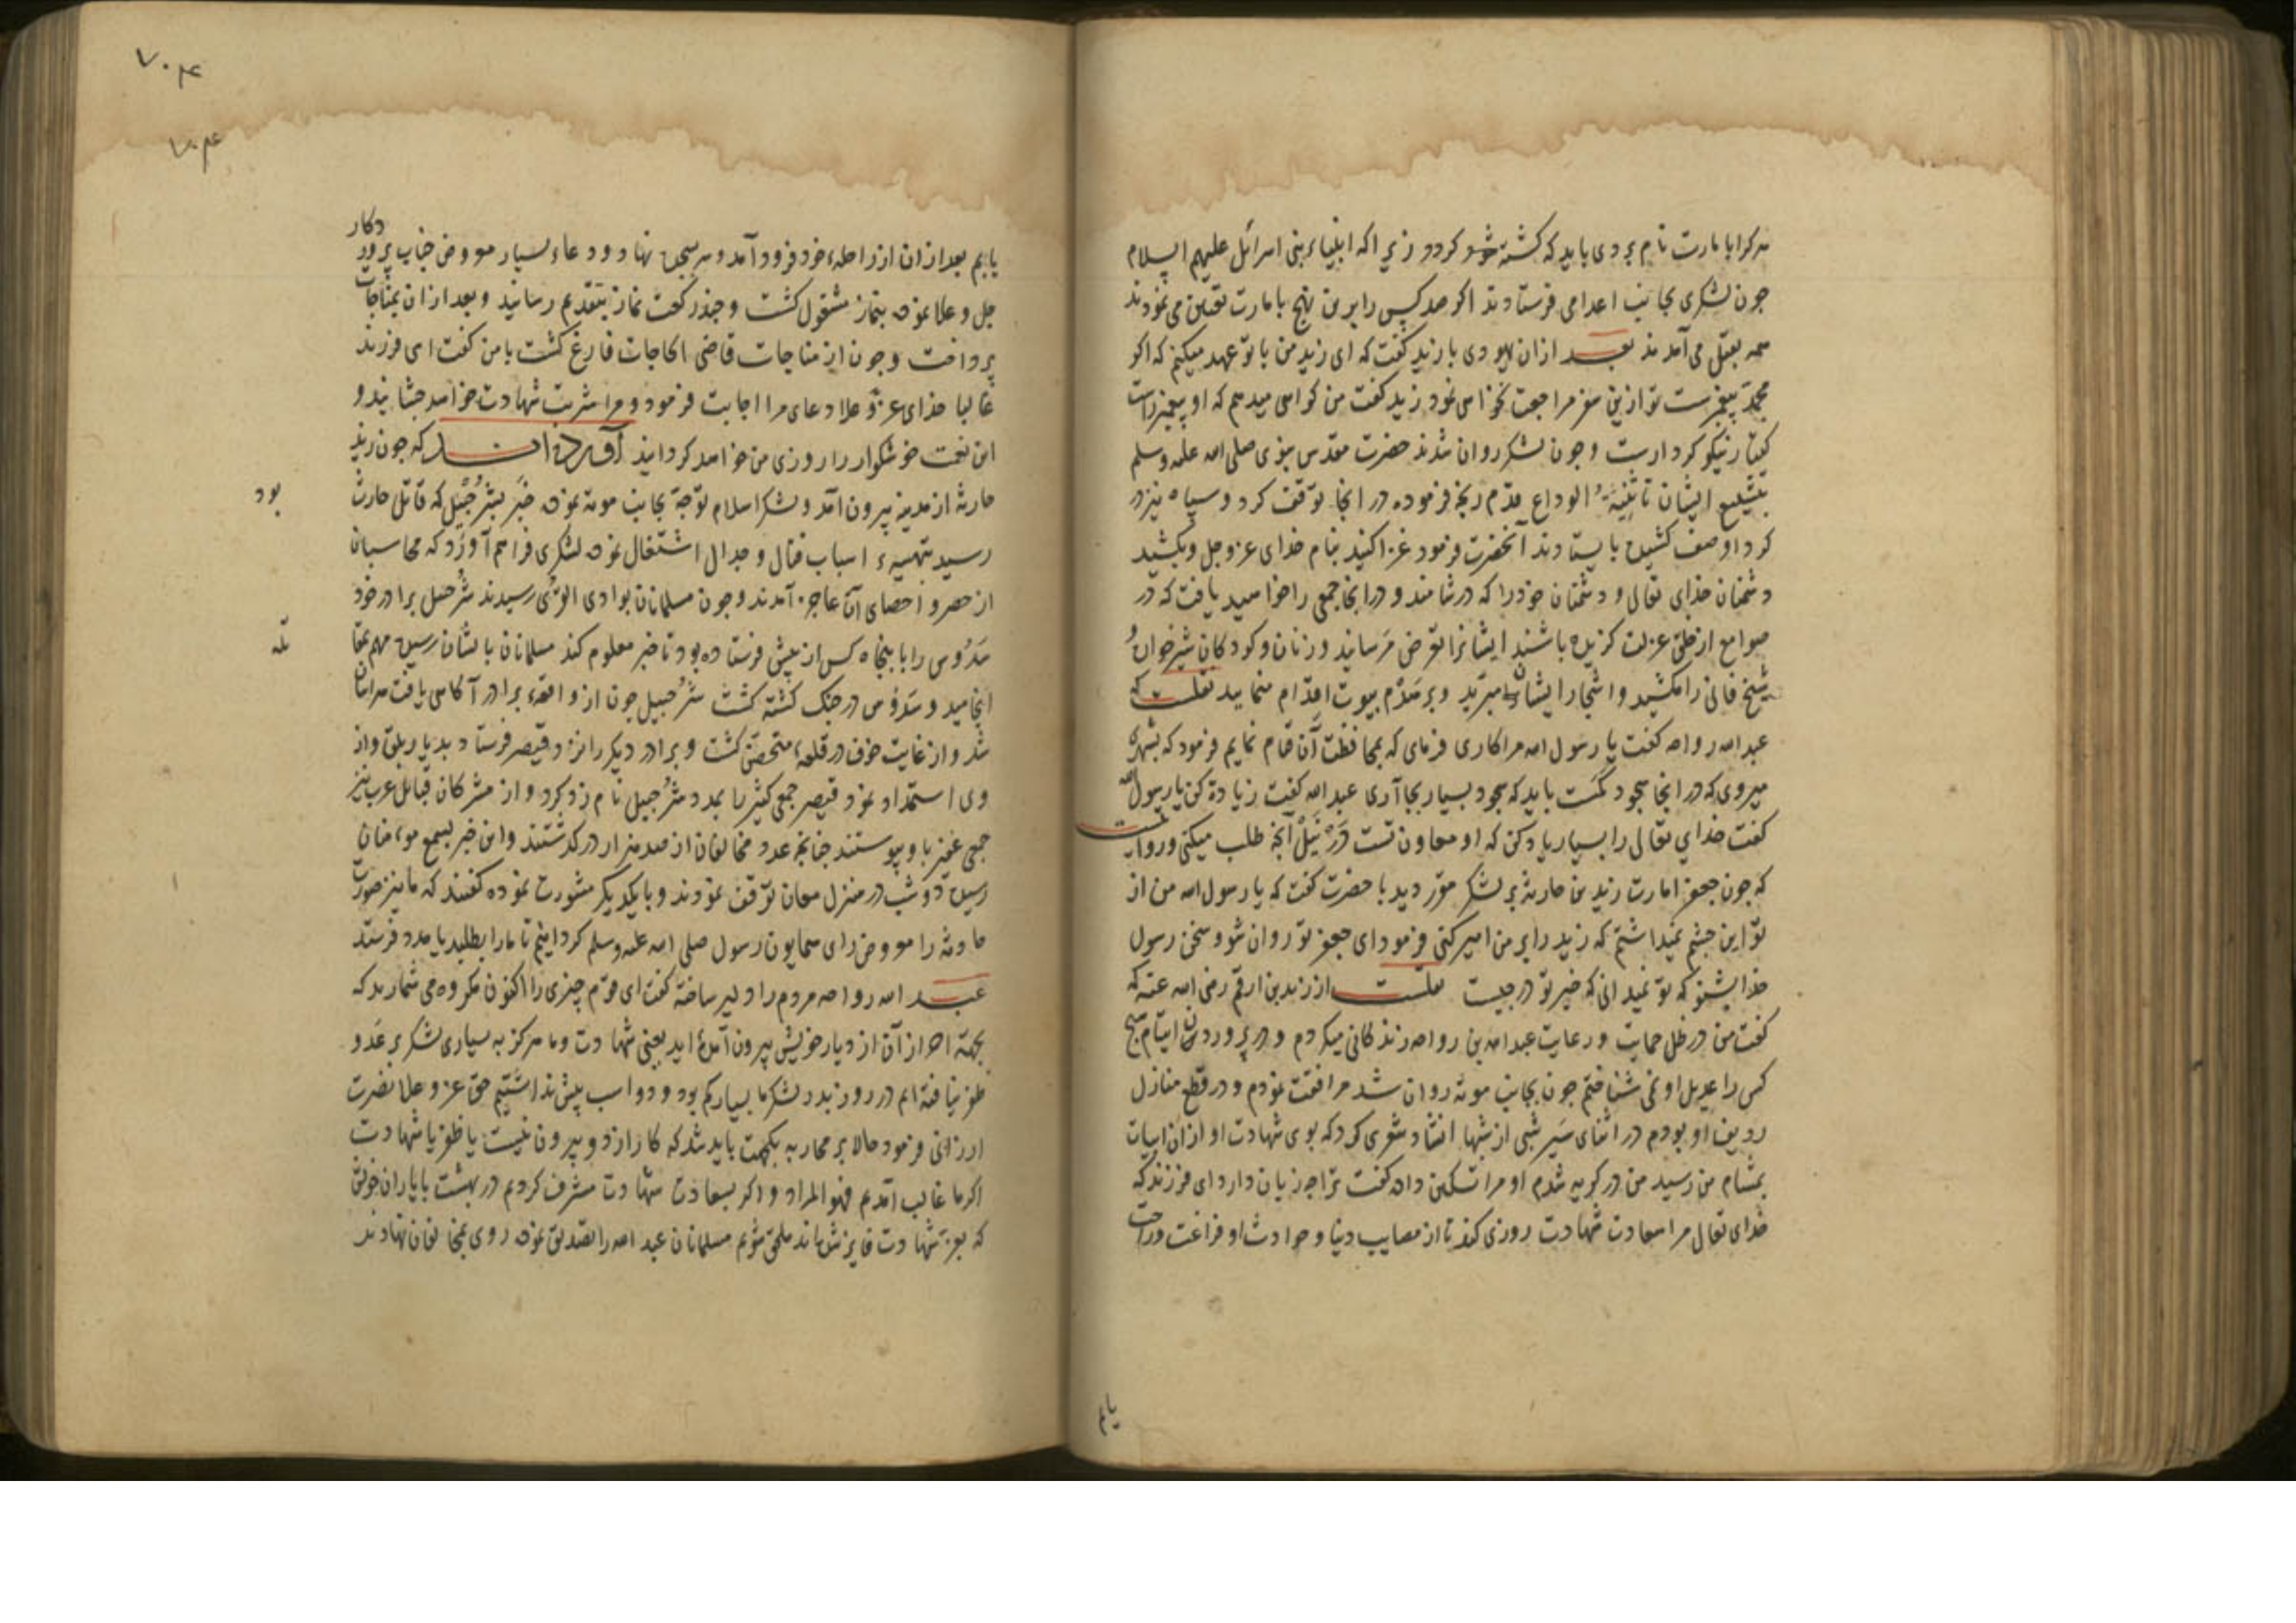 هر کرا بامارت نام بردی باید که کشته شود کردد زیرا که انبیاء بنی اسرائل علیهم السلام
چون لشکری بجانب اعدا می فرستادند اکر صد کس را برین نهج بامارت تعیین می نمودند
همه بقتل می آمدند بعد ازان یهودی با زید کفت که ای زید من با تو عهد میکنم که اکر
محمد پیغمبرست تو ازین سفر مراجعت نخواهی نمود زید کفت من کواهی میدهم که او پیغمبر راست
کفتار نیکو کردارست و چون لشکر روان شدند حضرت مقدس نبوی صلی الله علیه وسلم
بتشییع ایشان تا ثنیة الوداع قدم رنجه فرموده در انجا توقف کرد و سپاه نیز در
کرد او صف کشیده بایستادند آنحضرت فرمود غزا کنید بنام خدای عز وجل و بکشید
دشمنان خدای تعالی و دشمنان خود را که در شامند و در انجا جمعی را خواهید یافت که در
صوامع از خلق عزلت کزیده باشند ایشانرا تعرض مرسانید و زنان و کودکان شیرخواره
شیخ فانی را مکشید و اشجار ایشان را مبرید و بر هدم بیوت اقدام منمایید نقلست که
عبد الله رواحه کفت یا رسول الله مرا کاری فرمای که بمحافظت آن قیام نمایم فرمود که بشهری
میروی که در انجا سجود کمست باید که سجود بسیار بجا آری عبد الله کفت زیادة کن یا رسول الله
کفت خدای تعالی را بسیار یاد کن که او معاون تست در نیل آنچه طلب میکنی و روایتست
که چون جعفر امارت زید بن حارثه بر لشکر مقرر دید با حضرت کفت که یا رسول الله من از
تو این چشم نمیداشتم که زید را بر من امیر کنی فرمود ای جعفر تو روان شو و سخن رسول
خدا بشنو که تو نمیدانی که خیر تو در چیست نقلست از زید بن ارقم رضی الله عنه که
کفت من در ظل حمایت و رعایت عبد الله بن رواحه زندکانی میکردم و در پروردن ایتام هیچ
کس را عدیل او نمی شناختم چون بجانب موته روان شد مرافقت نمودم و در قطع منازل
ردیف او بودم در اثنای سیر شبی از شبها انشاد شعری کرد که بوی شهادت او ازان ابیات
بمشام من رسید من در کریه شدم او مرا تسکین داده کفت ترا چه زیان دارد ای فرزند که
خدای تعالی مرا سعادت شهادت روزی کند تا از مصایب دنیا و حوادث او فراغت و راحت
یابم
۷۰۴
۷۰۴
یابم بعد ازان از راحله خود فرود آمد و سر بسجده نهاد و دعاء بسیار معروض جناب پروردکار
جل و علا نموده بنماز مشغول کشت و چند رکعت نماز بتقدیم رسانید و بعد ازان بمناجات
پرداخت و چون از مناجات قاضی الحاجات فارغ کشت با من کفت ای فرزند
غالبا خدای عز و علا دعای مرا اجابت فرمود و مرا شربت شهادت خواهد چشانید و
این نعمت خوشکوار را روزی من خواهد کردانید آورده اند که چون زید
حارثه از مدینه بیرون آمد و لشکر اسلام توجه بجانب موته نموده خبر بشرحبیل که قاتل حارث
بود
رسید بتهیهء اسباب قتال و جدال اشتغال نموده لشکری فراهم آورد که محاسبان
از حصر و احصای آن عاجز آمدند و چون مسلمانان بوادی القری رسیدند شرحبیل برادر خود
سدوس را با پنجاه کس از پیش فرستاده بود تا خبر معلوم کند مسلمانان بایشان رسیده مهم بمقا
تله
انجامید و سدوس در جنک کشته کشت شرحبیل چون از واقعهء برادر آکاهی یافت هراسان
شد و از غایت خوف در قلعه متحصن کشت و برادر دیکر را نزد قیصر فرستاد بدیار بلقا و از
وی استمداد نمود قیصر جمعی کثیر را بمدد شرحبیل نام زد کرد و از مشرکان قبائل عرب نیز
جمعی غفیر باو پیوستند چنانچه عدد مخالفان از صد هزار درکذشتند و این خبر بسمع مومنان
رسیده دو شب در منزل معان توقف نمودند و با یکدیکر مشورت نموده کفتند که ما نیز صورت
حادثه را معروض رای همایون رسول صلی الله علیه وسلم کردانیم تا ما را بطلبد یا مدد فرستد
عبد الله رواحه مردم را دلیر ساخته کفت ای قوم چیزی را اکنون مکروه می شمارید که
بجهة احراز آن از دیار خویش بیرون آمده اید یعنی شهادت و ما هرکز به بسیاری لشکر بر عدو
ظفر نیافته ایم در روز بدر لشکر ما بسیار کم بود و دو اسب بیش نداشتیم حق عز و علا نصرت
ارزانی فرمود حالا بر محاربه یکجهت باید شد که کار از دو بیرون نیست یا ظفر یا شهادت
اکر ما غالب آمدیم فهو المراد و اکر بسعادت شهادت مشرف کردیم در بهشت با یاران خویش
که بعز شهادت فایز شده اند ملحق شویم مسلمانان عبد الله را تصدیق نموده روی بمخالفان نهادند